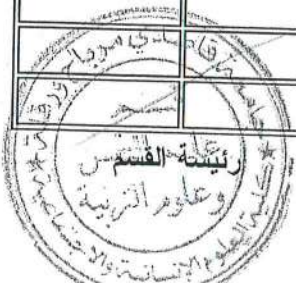 جامعة قاصدي مرباح ورقلة
رئيسة القسم
وعلوم التربية
كلية العلوم الإنسانية والاجتماعية